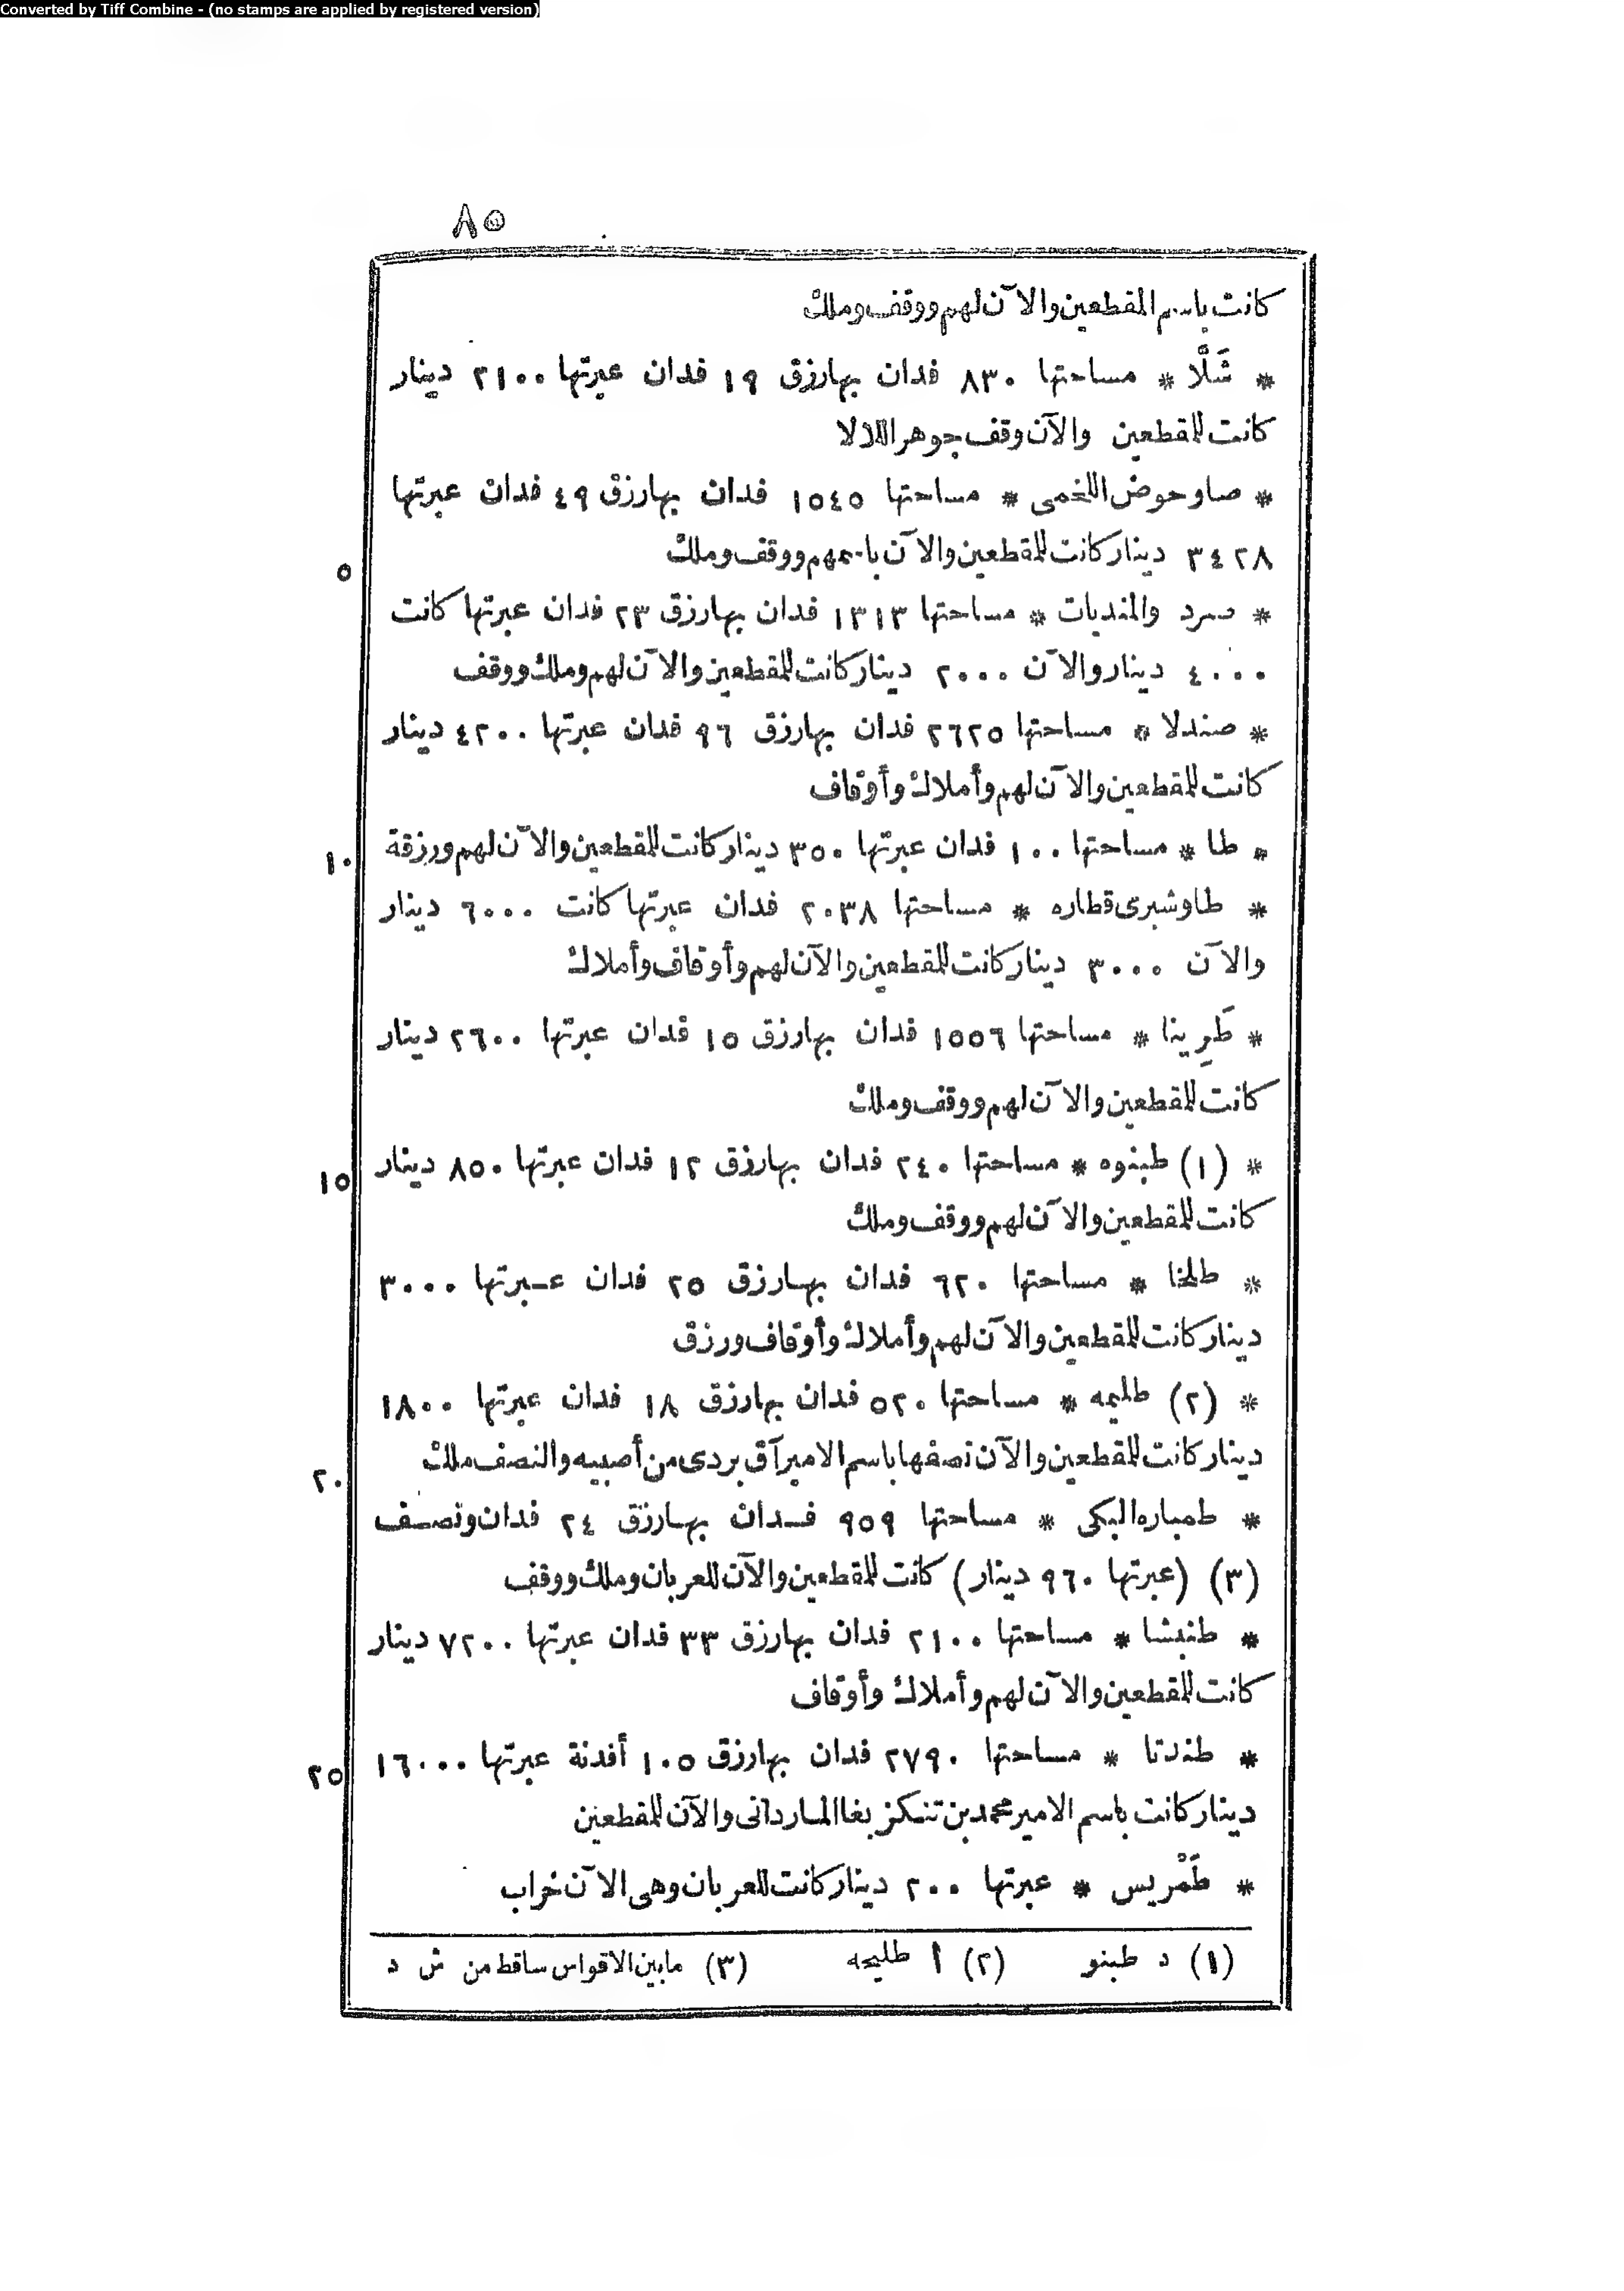 Converted by Tiff Combine - (no stamps are applied by registered version)
٨٥
كانت باسم المقطعين والآن لهم ووقف وملك
* شَلَّا * مساحتها ٨٣٠ فدان بها رزق ١٩ فدان عبرتها ٢١٠٠ دينار
كانت للمقطعين والآن وقف جوهر اللالا
* صا وحوض اللخمى * مساحتها ١٥٤٥ فدان بها رزق ٤٩ فدان عبرتها
٥ ٣٤٢٨ دينار كانت للمقطعين والآن باسمهم ووقف وملك
* صرد والمنديات * مساحتها ١٣١٣ فدان بها رزق ٢٣ فدان عبرتها كانت
٤٠٠٠ دينار والآن ٢٠٠٠ دينار كانت للمقطعين والآن لهم وملك ووقف
* صندلا * مساحتها ٢٦٢٥ فدان بها رزق ٩٦ فدان عبرتها ٤٢٠٠ دينار
كانت للمقطعين والآن لهم وأملاك وأوقاف
١٠ * طا * مساحتها ١٠٠ فدان عبرتها ٣٥٠ دينار كانت للمقطعين والآن لهم ورزقة
* طاوشبرى قطاره * مساحتها ٢٠٣٨ فدان عبرتها كانت ٦٠٠٠ دينار
والآن ٣٠٠٠ دينار كانت للمقطعين والآن لهم وأوقاف وأملاك
* طَرِينا * مساحتها ١٥٥٦ فدان بها رزق ١٥ فدان عبرتها ٢٦٠٠ دينار
كانت للمقطعين والآن لهم ووقف وملك
١٥ * (١) طبنوه * مساحتها ٢٤٠ فدان بها رزق ١٢ فدان عبرتها ٨٥٠ دينار
كانت للمقطعين والآن لهم ووقف وملك
* طلخا * مساحتها ٦٢٠ فدان بها رزق ٢٥ فدان عبرتها ٣٠٠٠
دينار كانت للمقطعين والآن لهم وأملاك وأوقاف ورزق
* (٢) طليمه * مساحتها ٥٢٠ فدان بها رزق ١٨ فدان عبرتها ١٨٠٠
٢٠ دينار كانت للمقطعين والآن نصفها باسم الامير آق بردى من أصبيه والنصف ملك
* طمباره البكى * مساحتها ٩٥٩ فدان بها رزق ٢٤ فدان ونصف
(٣) (عبرتها ٩٦٠ دينار) كانت للمقطعين والآن للعربان وملك ووقف
* طنبشا * مساحتها ٢١٠٠ فدان بها رزق ٣٣ فدان عبرتها ٧٢٠٠ دينار
كانت للمقطعين والآن لهم وأملاك وأوقاف
٢٥ * طندتا * مساحتها ٢٧٩٠ فدان بها رزق ١٠٥ أفدنة عبرتها ١٦٠٠٠
دينار كانت باسم الامير محمد بن تنكز بغا الماردانى والآن للمقطعين
* طَمْريس * عبرتها ٢٠٠ دينار كانت للعربان وهى الآن خراب
(١) د طبنو (٢) ا طليحه (٣) مابين الاقواس ساقط من ش د